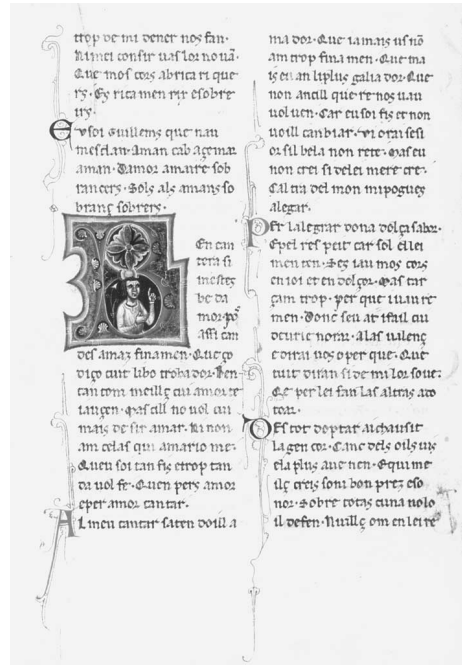 trop de mi dener nos fan.
Que mos cors abrica ri que
rs. Es rica men rir esobre
rs.
E usoi Guillems que nau
mesclan. Aman cab açemar
aman. Damor amaire sob
rancers. Sols als amans so
brans sobrers.
En can
tera si
mestes
be da
mor.
assi can
des amaz finamen. Queço
diço cuit libo trobador. Ben
tan com meillç cui amor te
iauçen. Mas cill no vol cui
mais desir amar. Ni non
am celas qui amario me.
Queu soi tan fis etrop tan
da vol fe. Quen pers amor
eper amor cantar.
A l meu cantar saten doill a
ma dor. Que iamais us nō
am trop fina men. Que ma
is en an li plus galiador. Que
non ancill que re nos uau
vol ven. Car eu soi fis et non
voill canbiar. orasesi
or sil bela non rete. Mas eu
non crei si delei merce cre.
Cal cui del mon mi pogues
alegar.
P er lalegrar dona dolça sabor.
Epel res peit car sol ellei
men ten. Ses iau mos cors
en ioi et en dolçor. Mas tar
çam trop. per que
men. Donc seu at
deurie notar. Alas valenç
e dirai vos oper que. Que
tuit diran si de mi lor soue.
Qe per lei fan las altras
toar.
D es tot doptar
la gen cor. Canc dels oils uis
ela plus auinen. Equi me
ilç creis son bon prez eso
nor. Sobre totas cuna nolo
il defen. Nuillç om en lei re